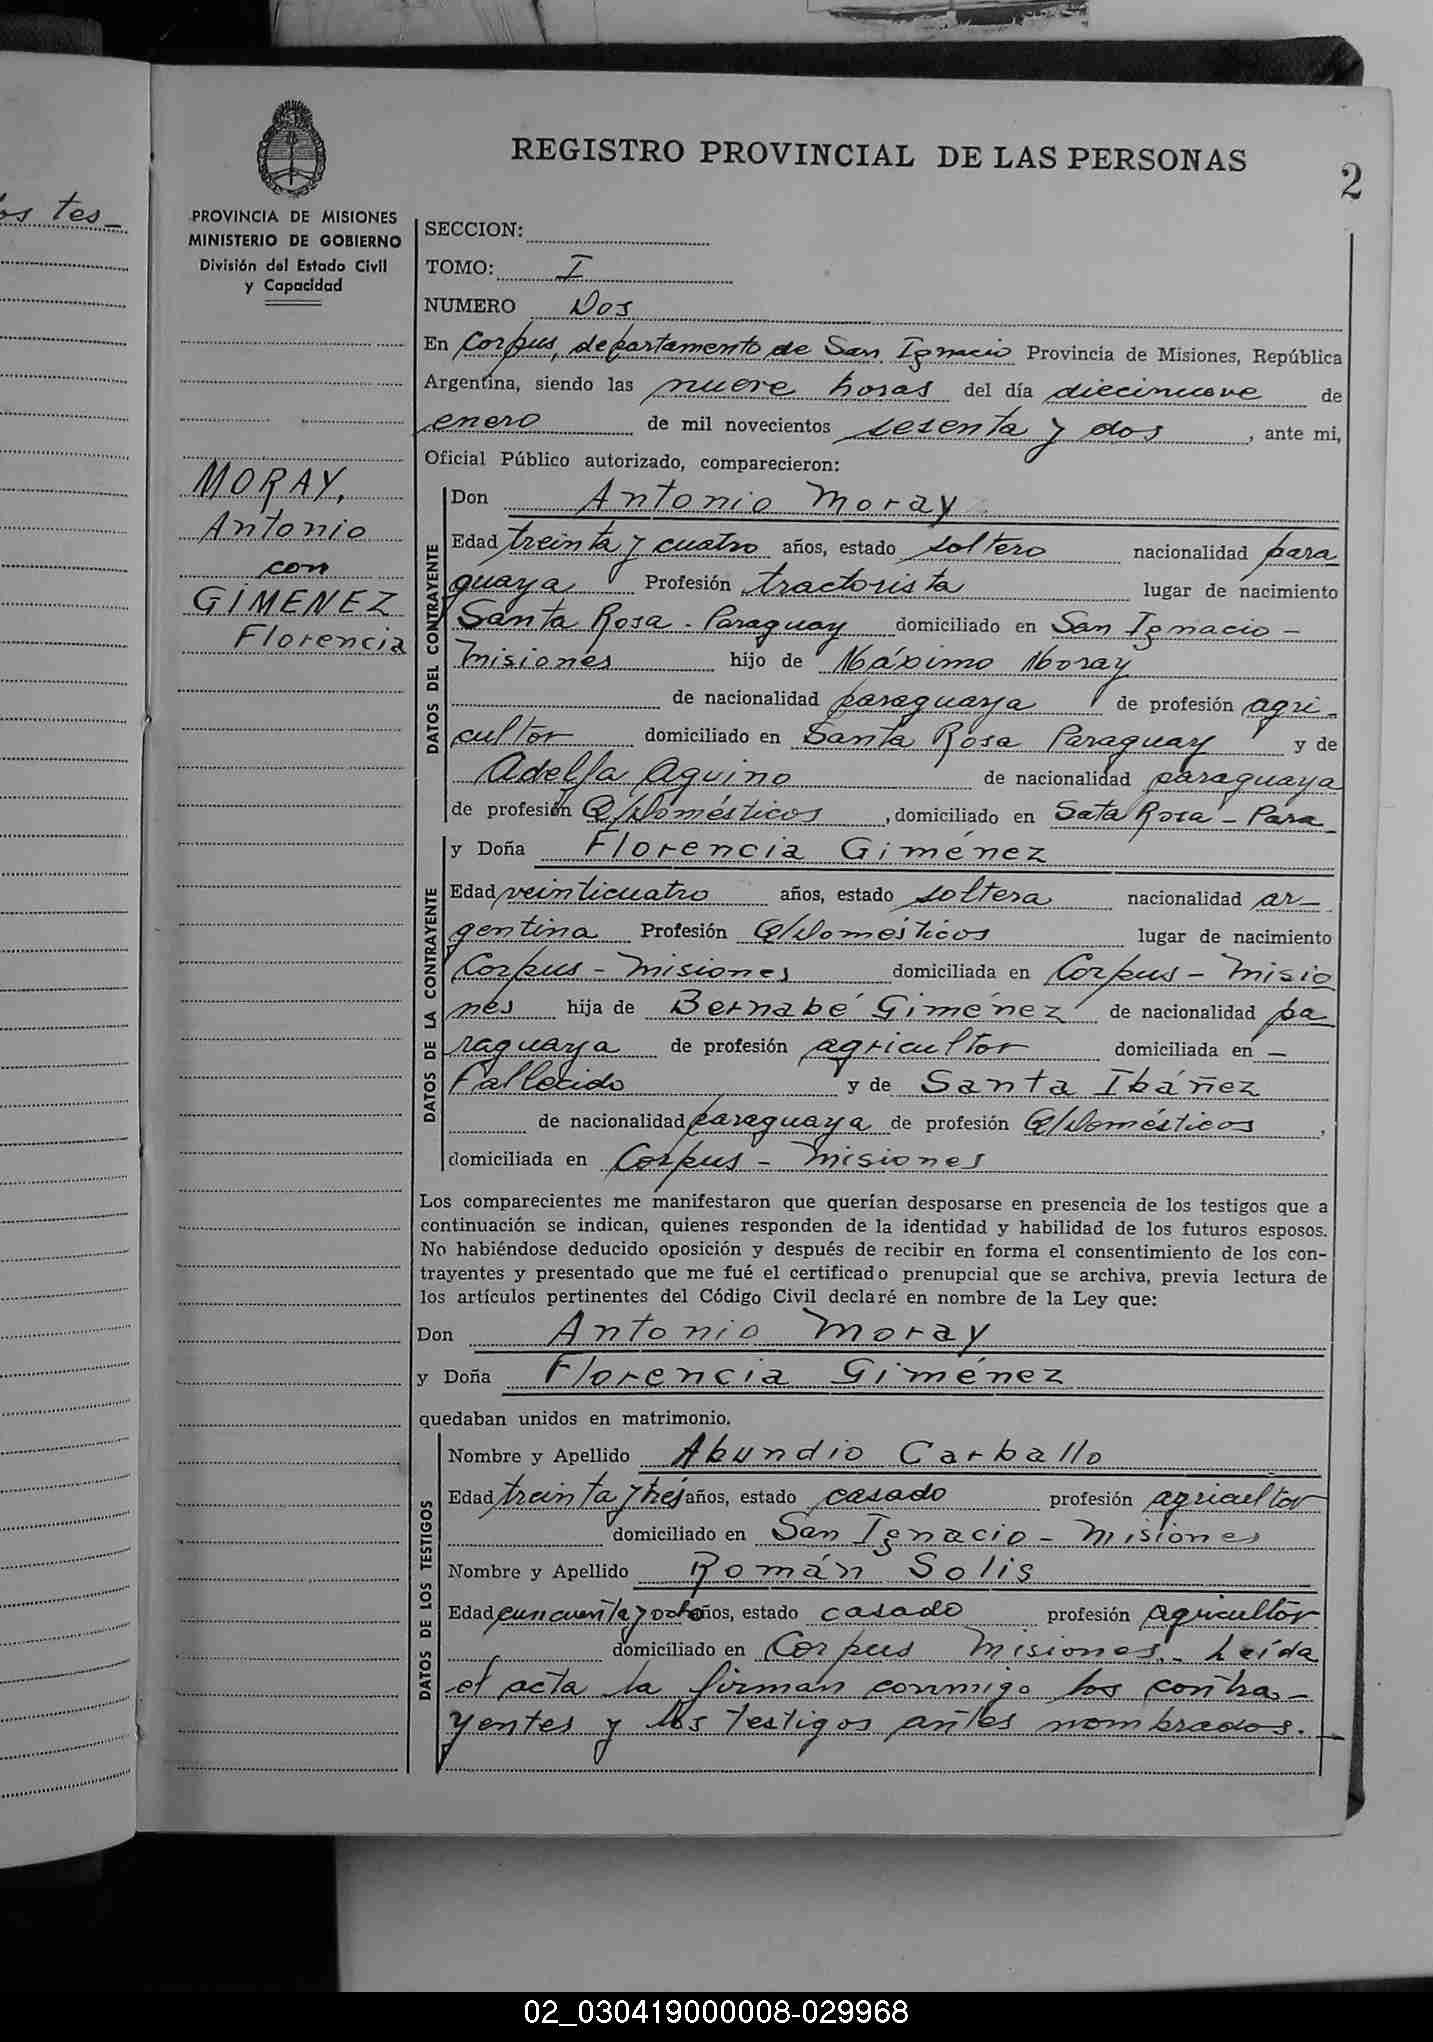 os tes_
PROVINCIA DE MISIONES
MINISTERIO DE GOBIERNO
División del Estado Civil
y Capacidad
MORAY,
Antonio
con
GIMENEZ
Florencia
REGISTRO PROVINCIAL DE LAS PERSONAS
2
SECCION:
TOMO: I
NUMERO Dos
En Corpus, departamento de San Ignacio Provincia de Misiones, República
Argentina, siendo las nueve horas del día diecinueve de
enero de mil novecientos sesenta y dos, ante mi,
Oficial Público autorizado, comparecieron:
DATOS DEL CONTRAYENTE
Don Antonio Moray
Edad treinta y cuatro años, estado soltero nacionalidad para
guaya Profesión tractorista lugar de nacimiento
Santa Rosa - Paraguay domiciliado en San Ignacio -
Misiones hijo de Máximo Moray
de nacionalidad paraguaya de profesión agri-
cultor domiciliado en Santa Rosa Paraguay y de
Adelfa Aquino de nacionalidad paraguaya
de profesión Q/Domésticos, domiciliado en Sata Rosa - Para-
DATOS DE LA CONTRAYENTE
y Doña Florencia Giménez
Edad veinticuatro años, estado soltera nacionalidad ar-
gentina Profesión Q/Domésticos lugar de nacimiento
Corpus - Misiones domiciliada en Corpus - Misio
nes hija de Bernabé Giménez de nacionalidad pa
raguaya de profesión agricultor domiciliada en -
Fallecido y de Santa Ibáñez
de nacionalidad paraguaya de profesión Q/Domésticos,
domiciliada en Corpus - Misiones
Los comparecientes me manifestaron que querían desposarse en presencia de los testigos que a
continuación se indican, quienes responden de la identidad y habilidad de los futuros esposos.
No habiéndose deducido oposición y después de recibir en forma el consentimiento de los con-
trayentes y presentado que me fué el certificado prenupcial que se archiva, previa lectura de
los artículos pertinentes del Código Civil declaré en nombre de la Ley que:
Don Antonio Moray
y Doña Florencia Giménez
quedaban unidos en matrimonio.
DATOS DE LOS TESTIGOS
Nombre y Apellido Abundio Carballo
Edad treinta y tres años, estado casado profesión agricultor
domiciliado en San Ignacio - Misiones
Nombre y Apellido Román Solis
Edad cuncuenta y ocho años, estado casado profesión agricultor
domiciliado en Corpus Misiones.- Leída
el acta la firman conmigo los contra-
yentes y los testigos antes nombrados.-
02_030419000008-029968